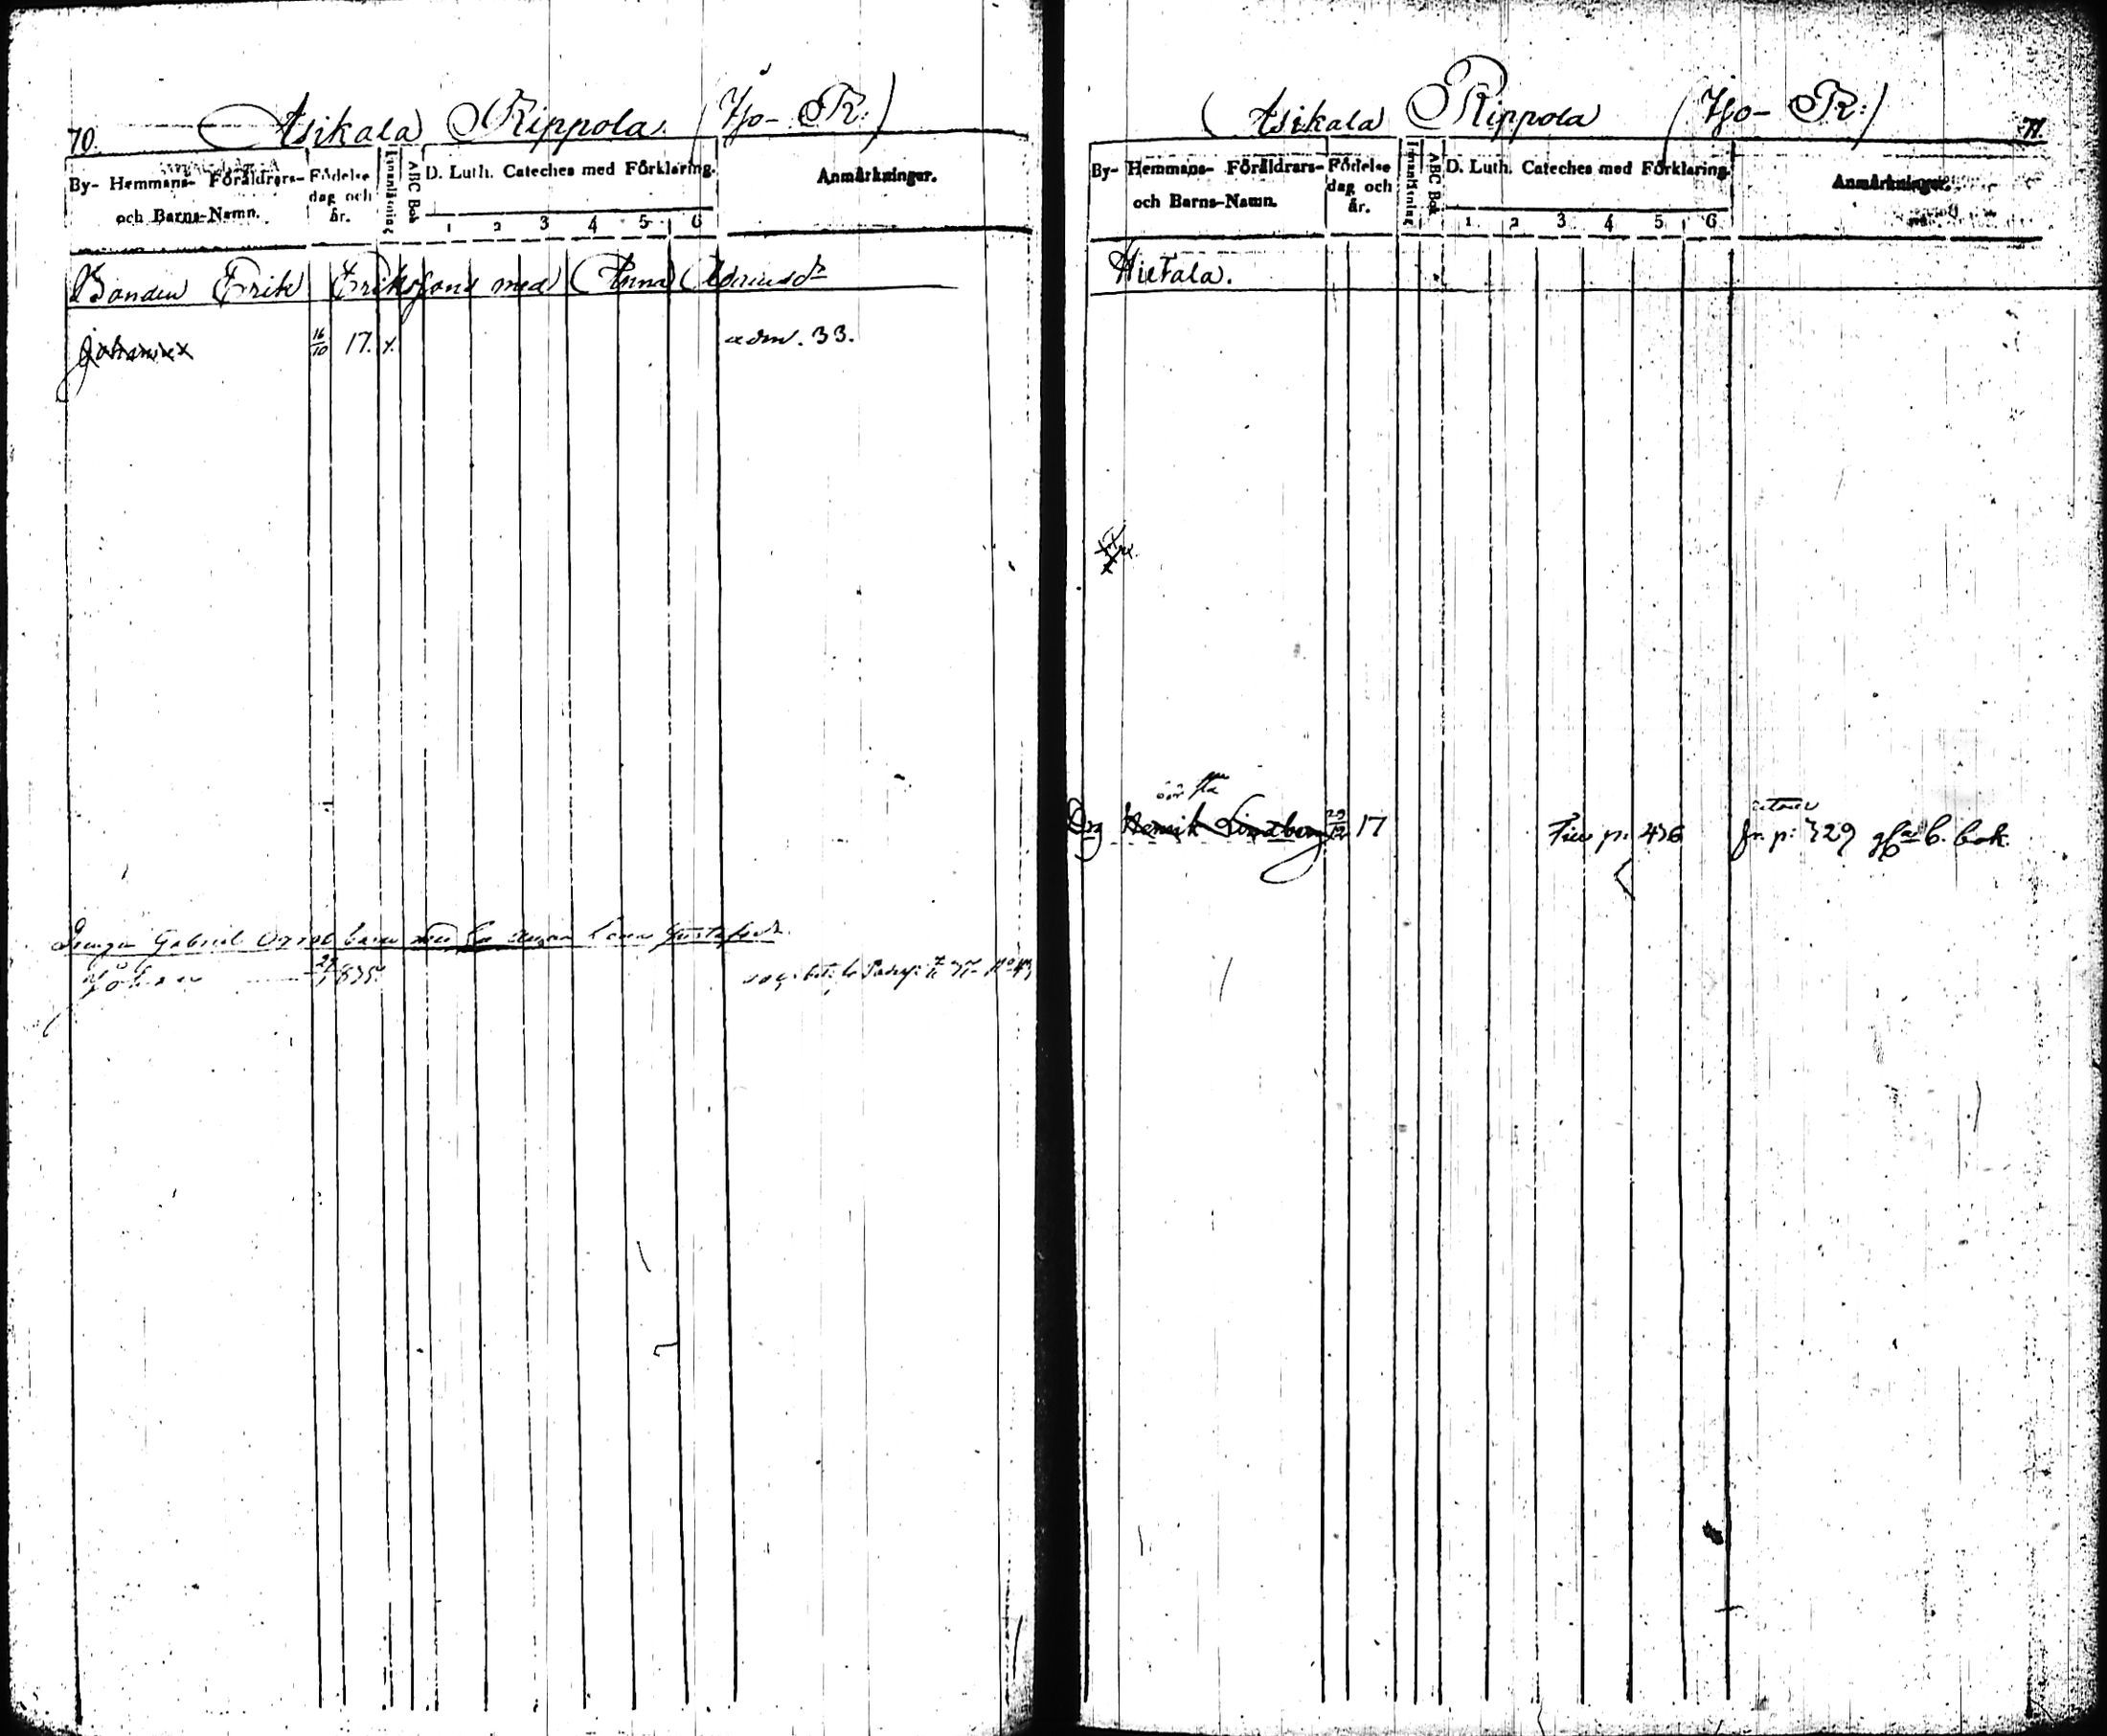 70.
Asikala Rippola. (Yjo- R:)
By- Hemmans- Föräldrars-
och Barns-Namn.
Födelse
dag och
år.
Innanläsning
ABC Bok
D. Luth. Cateches med Förklaring.
1 2 3 4 5 6
Anmärkningar.
Bonden Erik Erikssons med Anna Adamsdr
Johannes 16/10 17. x. adm. 33.
Drengen Gabriel barn med Gustafsdr.
Johan 835.
Asikala Rippola (Yjo- R:)
71.
By- Hemmans- Föräldrars-
och Barns-Namn.
Födelse
dag och
år.
Innanläsning
ABC Bok
D. Luth. Cateches med Förklaring.
1. 2 3. 4 5. 6
Anmärkningar.
Hietala.
Drg Henrik 29/12 17 p: 436 fr. p: 729 b. bok.